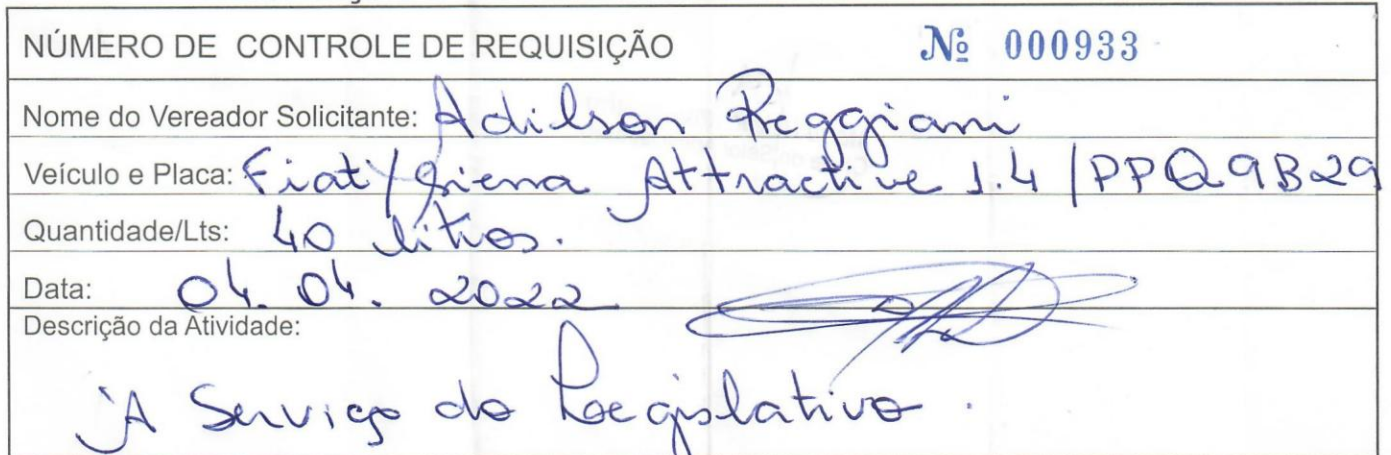 NÚMERO DE CONTROLE DE REQUISIÇÃO Nº 000933
Nome do Vereador Solicitante: Adilson Reggiani
Veículo e Placa: Fiat/Siena Attractive 1.4 / PPQ9B29
Quantidade/Lts: 40 litros.
Data: 04. 04. 2022
Descrição da Atividade:
À Serviço do Legislativo.